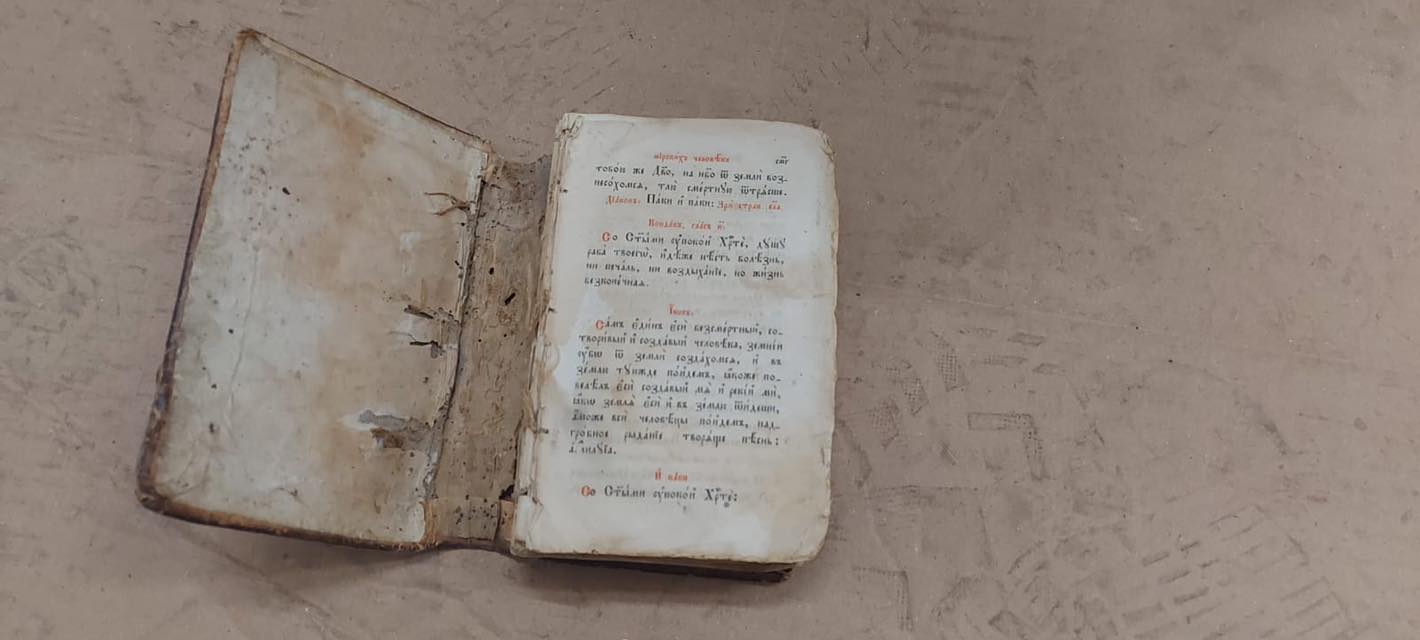 мірскихъ человѣкъ сиг
тобо́ю же Дв҃о, на нб҃о ѿ землѝ воз-
несо́хомсѧ, тлю̀ сме́ртнꙋю ѿтрѧ́сше.
Діа́конъ: Па́ки и҆ па́ки:
Конда́къ, гла́съ и҃:
Со Ст҃ы́ми ᲂу҆поко́й Хрⷭ҇тѐ, дꙋ́шꙋ
раба̀ твоегѡ̀, и҆дѣ́же нѣ́сть болѣ́знь,
ни печа́ль, ни воздыха́нїе, но жи́знь
безконе́чнаѧ.
І҆́косъ:
Са́мъ є҆ди́нъ є҆сѝ безсме́ртный, со-
твори́вый и҆ созда́вый человѣ́ка, земні́и
ᲂу҆́бѡ ѿ землѝ созда́хомсѧ, и҆ въ
зе́млю тꙋ́южде по́йдемъ, ꙗ҆́коже по-
велѣ́лъ є҆сѝ созда́вый мѧ̀ и҆ реки́й мѝ,
ꙗ҆́кѡ землѧ̀ є҆сѝ и҆ въ зе́млю ѿи́деши,
а҆́може всѝ человѣ́цы по́йдемъ, над-
гро́бное рыда́нїе творѧ́ще пѣ́снь:
а҆ллилꙋ́їа.
И҆ па́ки
Со Ст҃ы́ми ᲂу҆поко́й Хрⷭ҇тѐ: